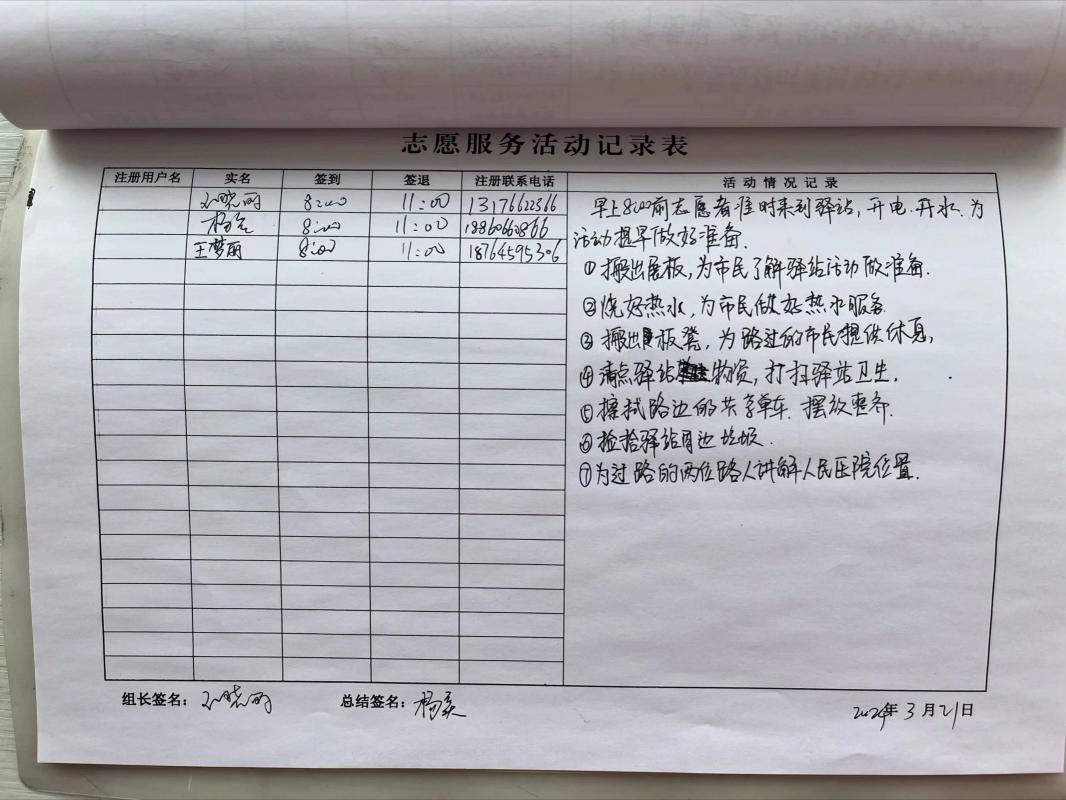 志愿服务活动记录表
注册用户名 实名 签到 签退 注册联系电话 活动情况记录
晓丽 8:00 11:00 13176622366
杨 8:00 11:00 18860660866
王梦丽 8:00 11:00 18764595306
早上8:00前志愿者准时来到驿站,开电.开水.为
活动提早做好准备.
①搬出展板,为市民了解驿站活动做准备.
②烧好热水,为市民做好热水服务.
③搬出板凳,为路过的市民提供休息,
④清点驿站物资,打扫驿站卫生.
⑤擦拭路边的共享单车.摆放整齐.
⑥捡拾驿站周边垃圾.
⑦为过路的两位路人讲解人民医院位置.
组长签名: 总结签名: 杨 2024年3月21日